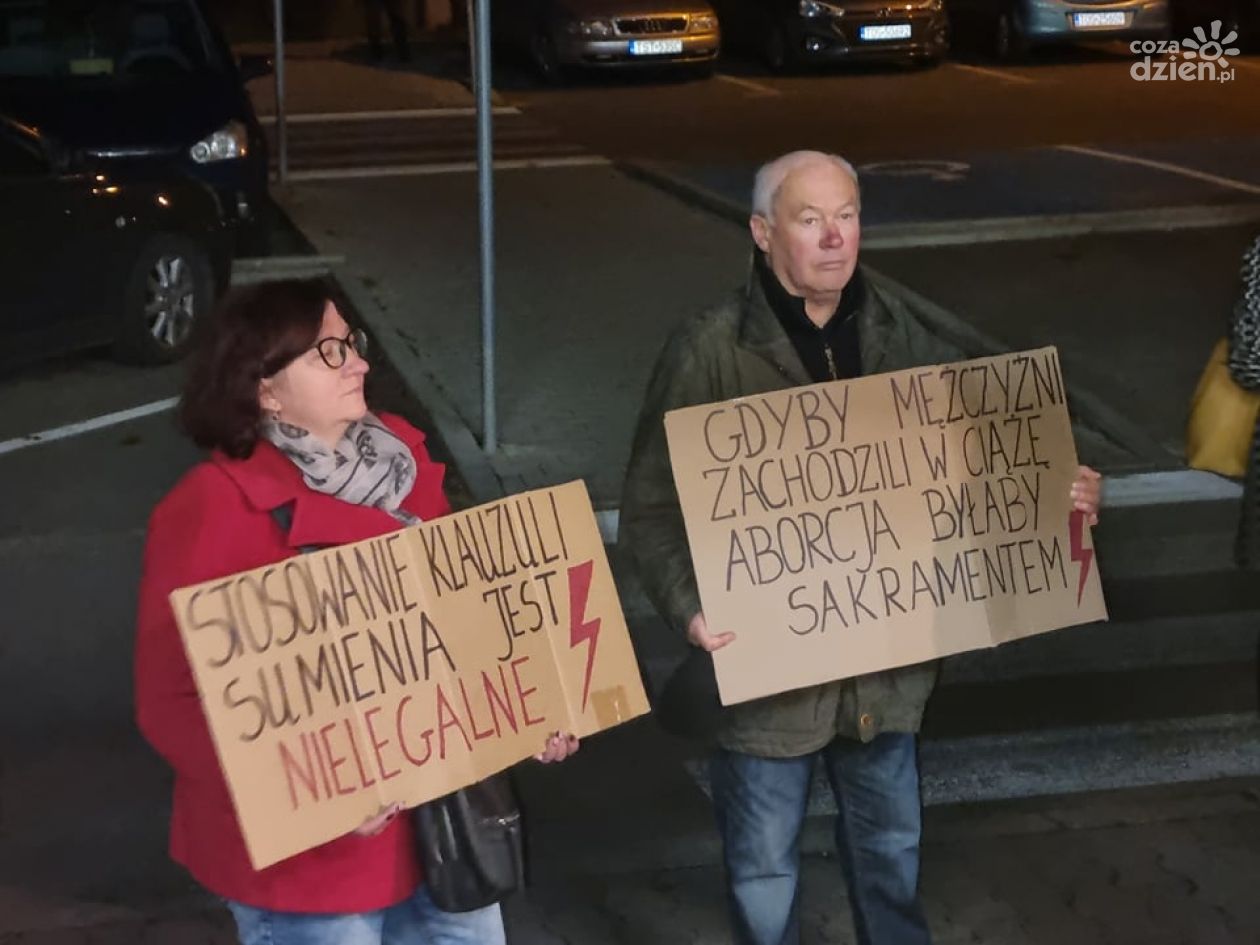 coza
dzień.pl
STOSOWANIE KLAUZULI
SUMIENIA JEST
NIELEGALNE
GDYBY MĘŻCZYŹNI
ZACHODZILI W CIĄŻĘ
ABORCJA BYŁABY
SAKRAMENTEM